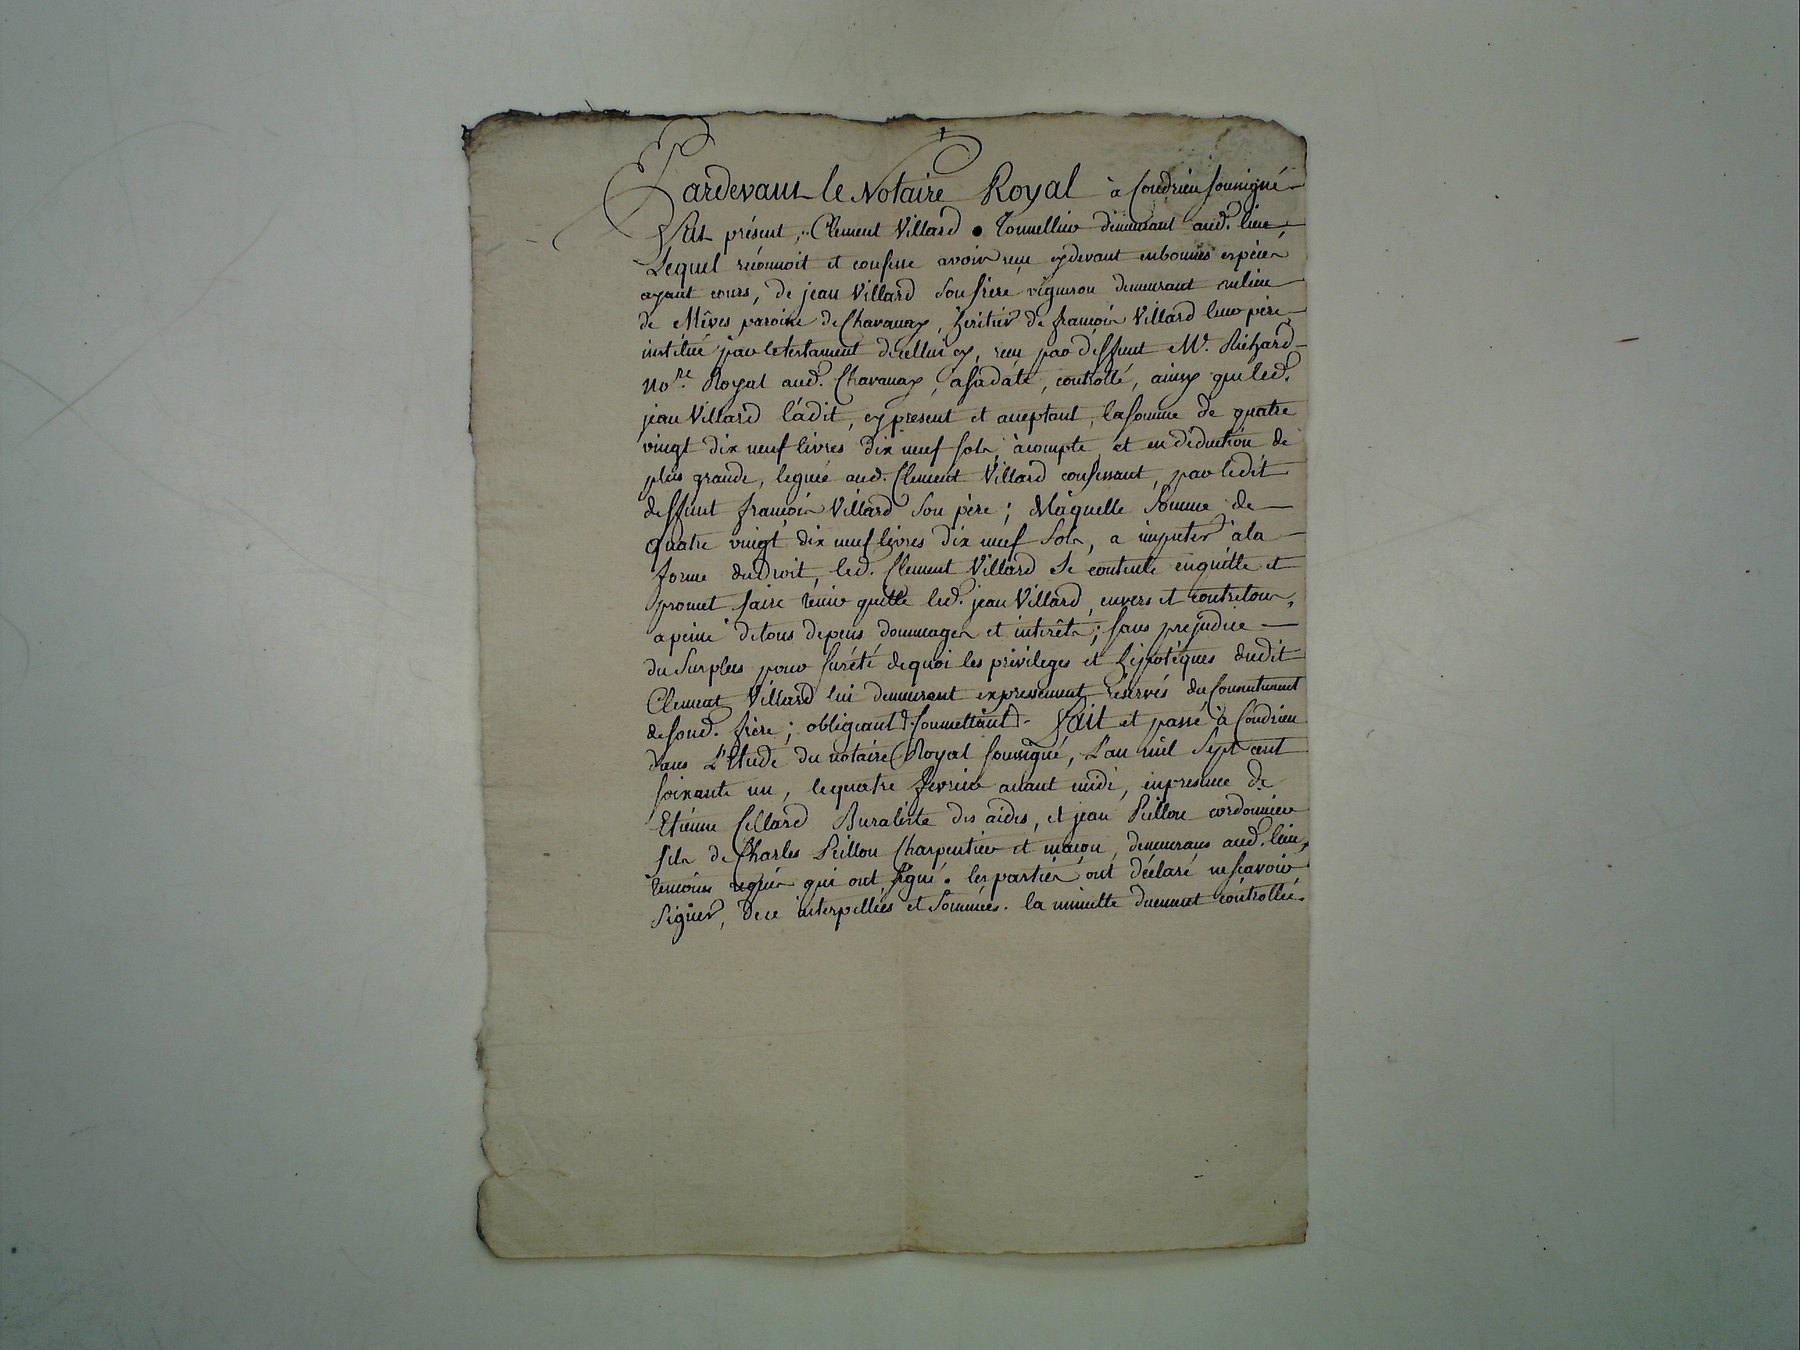 Pardevant le Notaire Royal à Condrieu soussigné
Fut présent, Clement Villard Tonnellier demeurant aud. lieu,
Lequel réconnoit et confesse avoir reçu cydevant en bonnes espéces
ayant cours, de jean Villard son frère vigneron demeurant au lieu
de Mêves paroisse de Chavanay, héritiér de françois Villard leur père,
institué par le testament dicelluy cy, reçu par deffunt Me. Richard
No.re Royal aud. Chavanay, à sa date, controllé, ainsy que led.
jean Villard l'a dit, cy present et acceptant, la somme de quatre
vingt dix neuf livres dix neuf sols, àcompte et en déduction de
plus grande, leguée aud. Clement Villard confessant, par ledit
deffunt françois Villard son père; de laquelle somme de
quatre vingt dix neuf livres dix neuf sols, a imputer à la
forme du Droit, led. Clement Villard se contente en quitte et
promet faire tenir quitte led. jean Villard, envers et contre tous,
a peine de tous depens dommages et interêts; sans prejudice
du surplus pour sûrété de quoi les privileges et hipotéques dudit
Clement Villard lui demeurent expressement réservés du Consentement
de son d. frère; obligeant & soumettant & fait et passé à Condrieu
dans L'Etude du notaire Royal soussigné, L'an mil sept cent
soixante un, le quatre fevrier avant midi, en presence de
Etienne Cellard Buraliste des aides, et jean Peillon cordonnier
fils de Charles Peillon Charpentier et maçon, demeurans aud. lieu,
temoins requis qui ont signé. les partiés ont déclaré ne scavoir
signer, de ce interpellées et sommées. la minutte duement contrôllée.